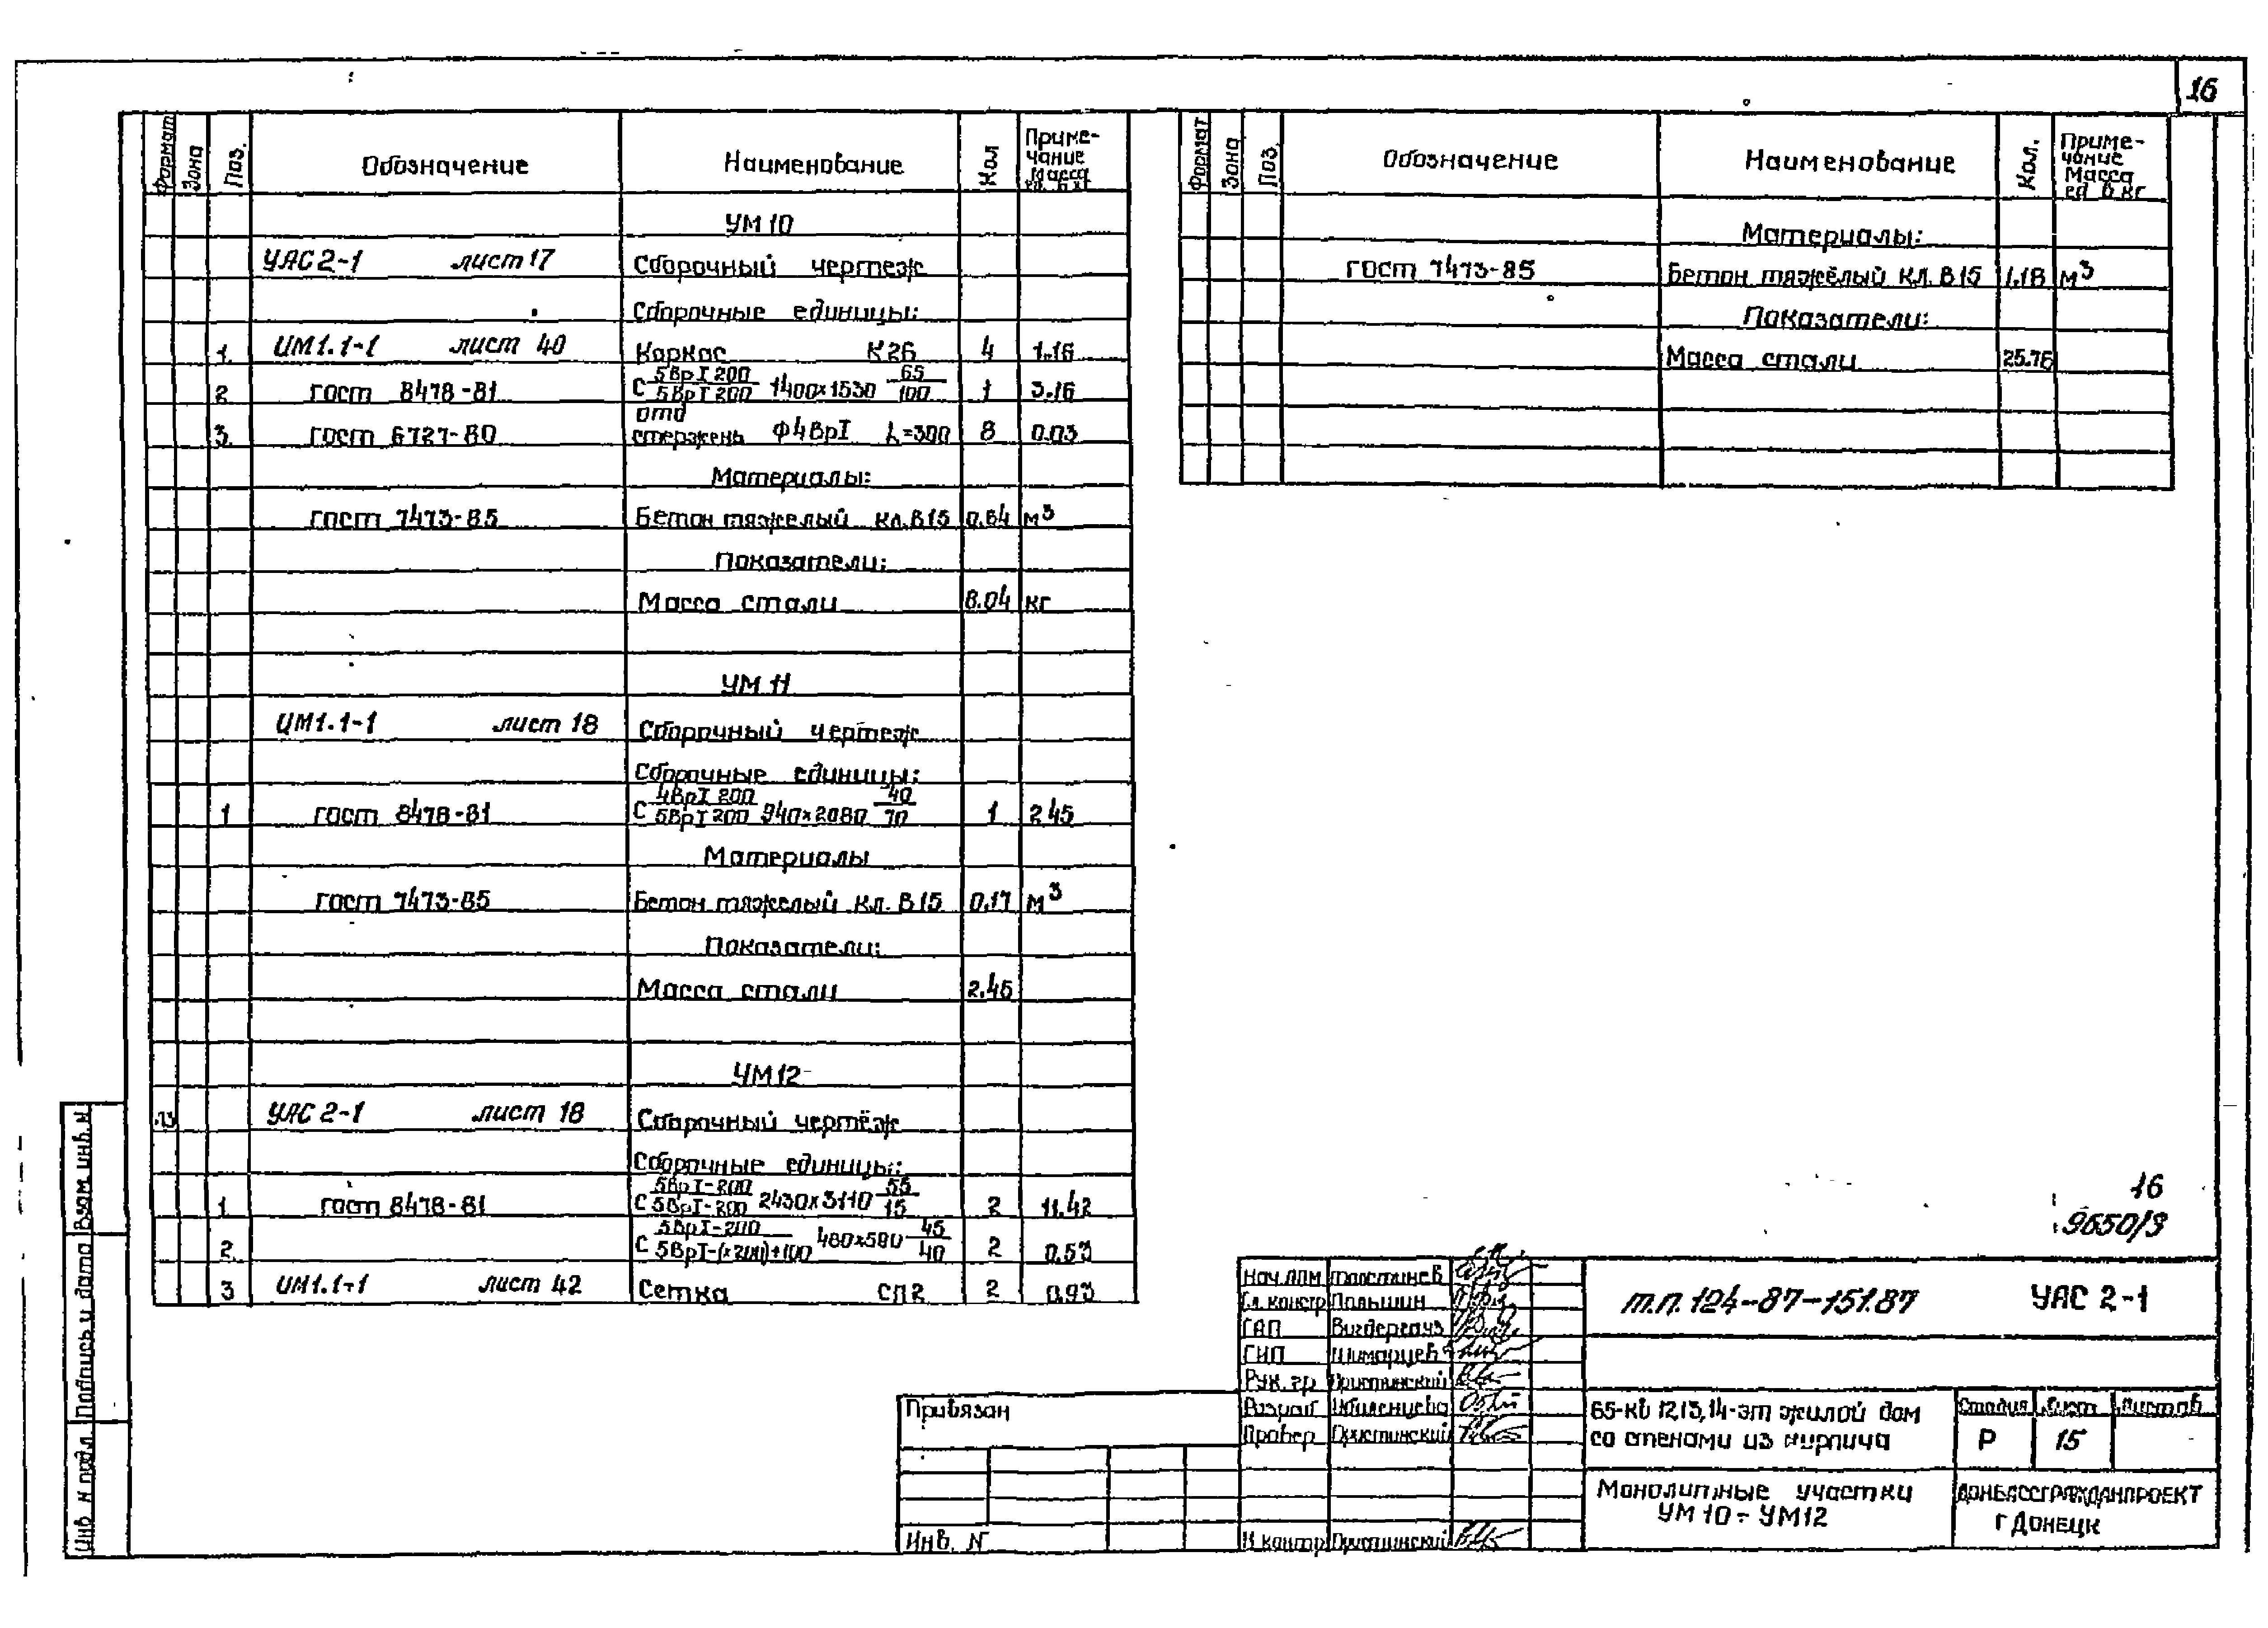 16
Формат Зона Поз. Обозначение Наименование Кол Примечание Масса ед. в кг
УМ 10
УАС 2-1 лист 17 Сборочный чертеж
Сборочные единицы:
1. ЦМ1.1-1 лист 40 Каркас К26 4 1.16
2 ГОСТ 8478-81 С 5ВрI 200 / 5ВрI 200 1400×1530 65/100 1 3.16
3. ГОСТ 6727-80 отд стержень Ф4ВрI L=300 8 0.03
Материалы:
ГОСТ 7473-85 Бетон тяжелый кл. В15 0.64 м³
Показатели:
Масса стали 8.04 кг
УМ 11
ЦМ1.1-1 лист 18 Сборочный чертеж
Сборочные единицы:
1 ГОСТ 8478-81 С 4ВрI 200 / 5ВрI 200 940×2080 40/70 1 2.45
Материалы
ГОСТ 7473-85 Бетон тяжелый кл. В15 0.17 м³
Показатели:
Масса стали 2.45
УМ12
УАС 2-1 лист 18 Сборочный чертёж
Сборочные единицы:
1 ГОСТ 8478-81 С 5ВрI-200 / 5ВрI-200 2430×3110 55/15 2 11.42
2. С 5ВрI-200 / 5ВрI-(×200)+100 480×580 45/40 2 0.53
3 ЦМ1.1-1 лист 42 Сетка СП2 2 0.93
Формат Зона Поз. Обозначение Наименование Кол. Примечание Масса ед. в кг
Материалы:
ГОСТ 7473-85 Бетон тяжёлый кл. В15 1.18 м³
Показатели:
Масса стали 25.76
16
9650/3
Взам. инв. N
Подпись и дата
Инв N подл.
Привязан
Инв. N
Гл. констр Польшин
ГАП Вигдергауз
ГИП
Рук. гр Пристинский
Разраб
Провер Пристинский
Н контр Пристинский
т.п. 124-87-151.87 УАС 2-1
65-кв 12,13,14-эт жилой дом со стенами из кирпича
Стадия Лист Листов
Р 15
Монолитные участки УМ 10 ÷ УМ12
ДОНБАССГРАЖДАНПРОЕКТ
г Донецк